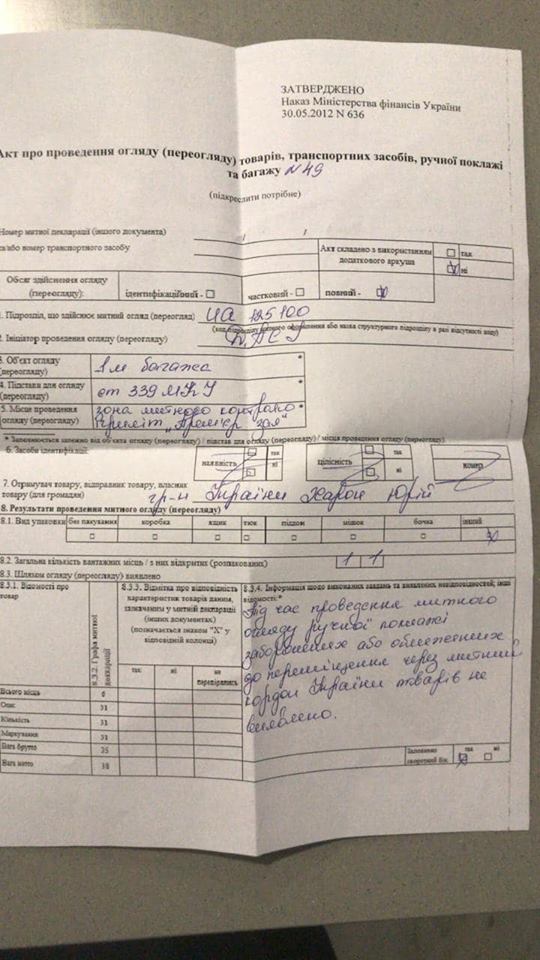 ЗАТВЕРДЖЕНО
Наказ Міністерства фінансів України
30.05.2012 N 636
Акт про проведення огляду (переогляду) товарів, транспортних засобів, ручної поклажі
та багажу N 49
(підкреслити потрібне)
Номер митної декларації (іншого документа) / /
та/або номер транспортного засобу
Акт складено з використанням додаткового аркуша
так
ні
Обсяг здійснення огляду (переогляду):
ідентифікаційний - частковий - повний -
1. Підрозділ, що здійснює митний огляд (переогляд) UA 125100
(код підрозділу митного оформлення або назва структурного підрозділу в разі відсутності коду)
2. Ініціатор проведення огляду (переогляду)
3. Об'єкт огляду (переогляду) 1 м багажа *
4. Підстави для огляду (переогляду) ст 339 МКУ *
5. Місце проведення огляду (переогляду) зона митного контролю "Прем'єр зал" *
* Заповнюється залежно від об'єкта огляду (переогляду) / підстав для огляду (переогляду) / місця проведення огляду (переогляду)
6. Засоби ідентифікації:
наявність так ні цілісність так ні номер
7. Отримувач товару, відправник товару, власник товару (для громадян) гр-н України Харон Юрій
8. Результати проведення митного огляду (переогляду)
8.1. Вид упаковки без пакування коробка ящик тюк піддон мішок бочка інший
8.2. Загальна кількість вантажних місць / з них відкритих (розпакованих) 1 1
8.3. Шляхом огляду (переогляду) виявлено
8.3.1. Відомості про товар
8.3.2. Графа митної декларації
8.3.3. Відмітка про відповідність характеристик товарів даним, зазначеним у митній декларації (інших документах) (позначається знаком "X" у відповідній колонці)
так ні не перевірялись
8.3.4. Інформація щодо виконаних завдань та виявлених невідповідностей; інші відомості*
Під час проведення митного
огляду ручної поклажі
заборонених або обмежених
до переміщення через митний
кордон України товарів не
виявлено.
Всього місць 6
Опис 31
Кількість 31
Маркування 31
Вага брутто 35
Вага нетто 38
Заповнено зворотний бік:
так ні